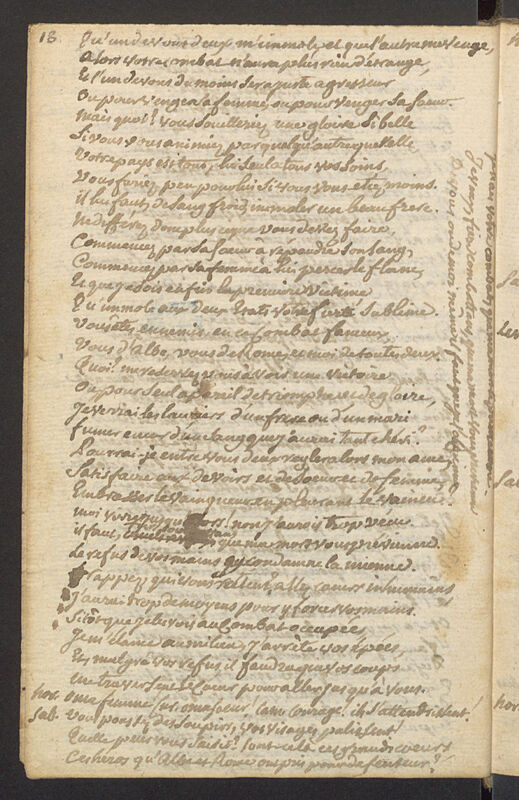 18.
Qu'un de vous deux m'immole, et que l'autre me venge,
Alors votre combat n'aura plus rien d'étrange,
Et l'un de vous du moins sera juste agresseur
Ou pour venger sa femme, ou pour venger sa soeur.
Mais quoi! Vous souilleriez une gloire si belle
Si vous vous animiez par quelqu'autre querelle
Votre pays est tout, lui seul a tous vos soins,
Vous feriez peu pour lui si vous vous etiez moins.
il lui faut, de sang froid, immoler un beau frere.
Ne differez donc plus ce que vous devez faire,
Commencez par sa soeur à répandre son sang,
Commencez par sa femme à lui percer le flanc,
Et que je sois enfin la premiere victime
Qu'immole aux deux Etats votre sublime.
Vous êtes ennemis en ce combat fameux,
Vous d'Albe, vous de Rome, et moi de toutes deux.
Quoi! me reservez vous à voir une victoire
Ou pour seul apareil de triomphe et de gloire,
Je verrai les lauriers d'un frere ou d'un mari
fumer encor d'un sang que j'aurai tant cheri?
Pourrai-je entre vous deux regler alors mon ame,
Satisfaire aux devoirs et de soeur et de femme,
Embrasser le vainqueur en pleurant le vaincu?
moi non! j'aurois trop vecu
il faut, que ma mort vous previenne.
Le refus de vos mains y condamne la mienne
frappez qui vous retient? allez, coeurs inhumains
J'aurai trop de moyens pour y forcer vos mains.
Sitôt que je le vois au combat occupée,
Je m'élance au milieu, j'arrête vos épées,
Et malgré vos refus il faudra que vos coups
me traversent le coeur pour aller jusqu'à vous.
hor. o ma femme! cur. o ma soeur! cam. courage! ils s'attendrissent!
Sab. vous poussez des soupirs, vos visages palissent!
Quelle peur vous saisit? sont-ce là ces grands coeurs
Ces héros qu'Albe et Rome ont pris pour defenseur?